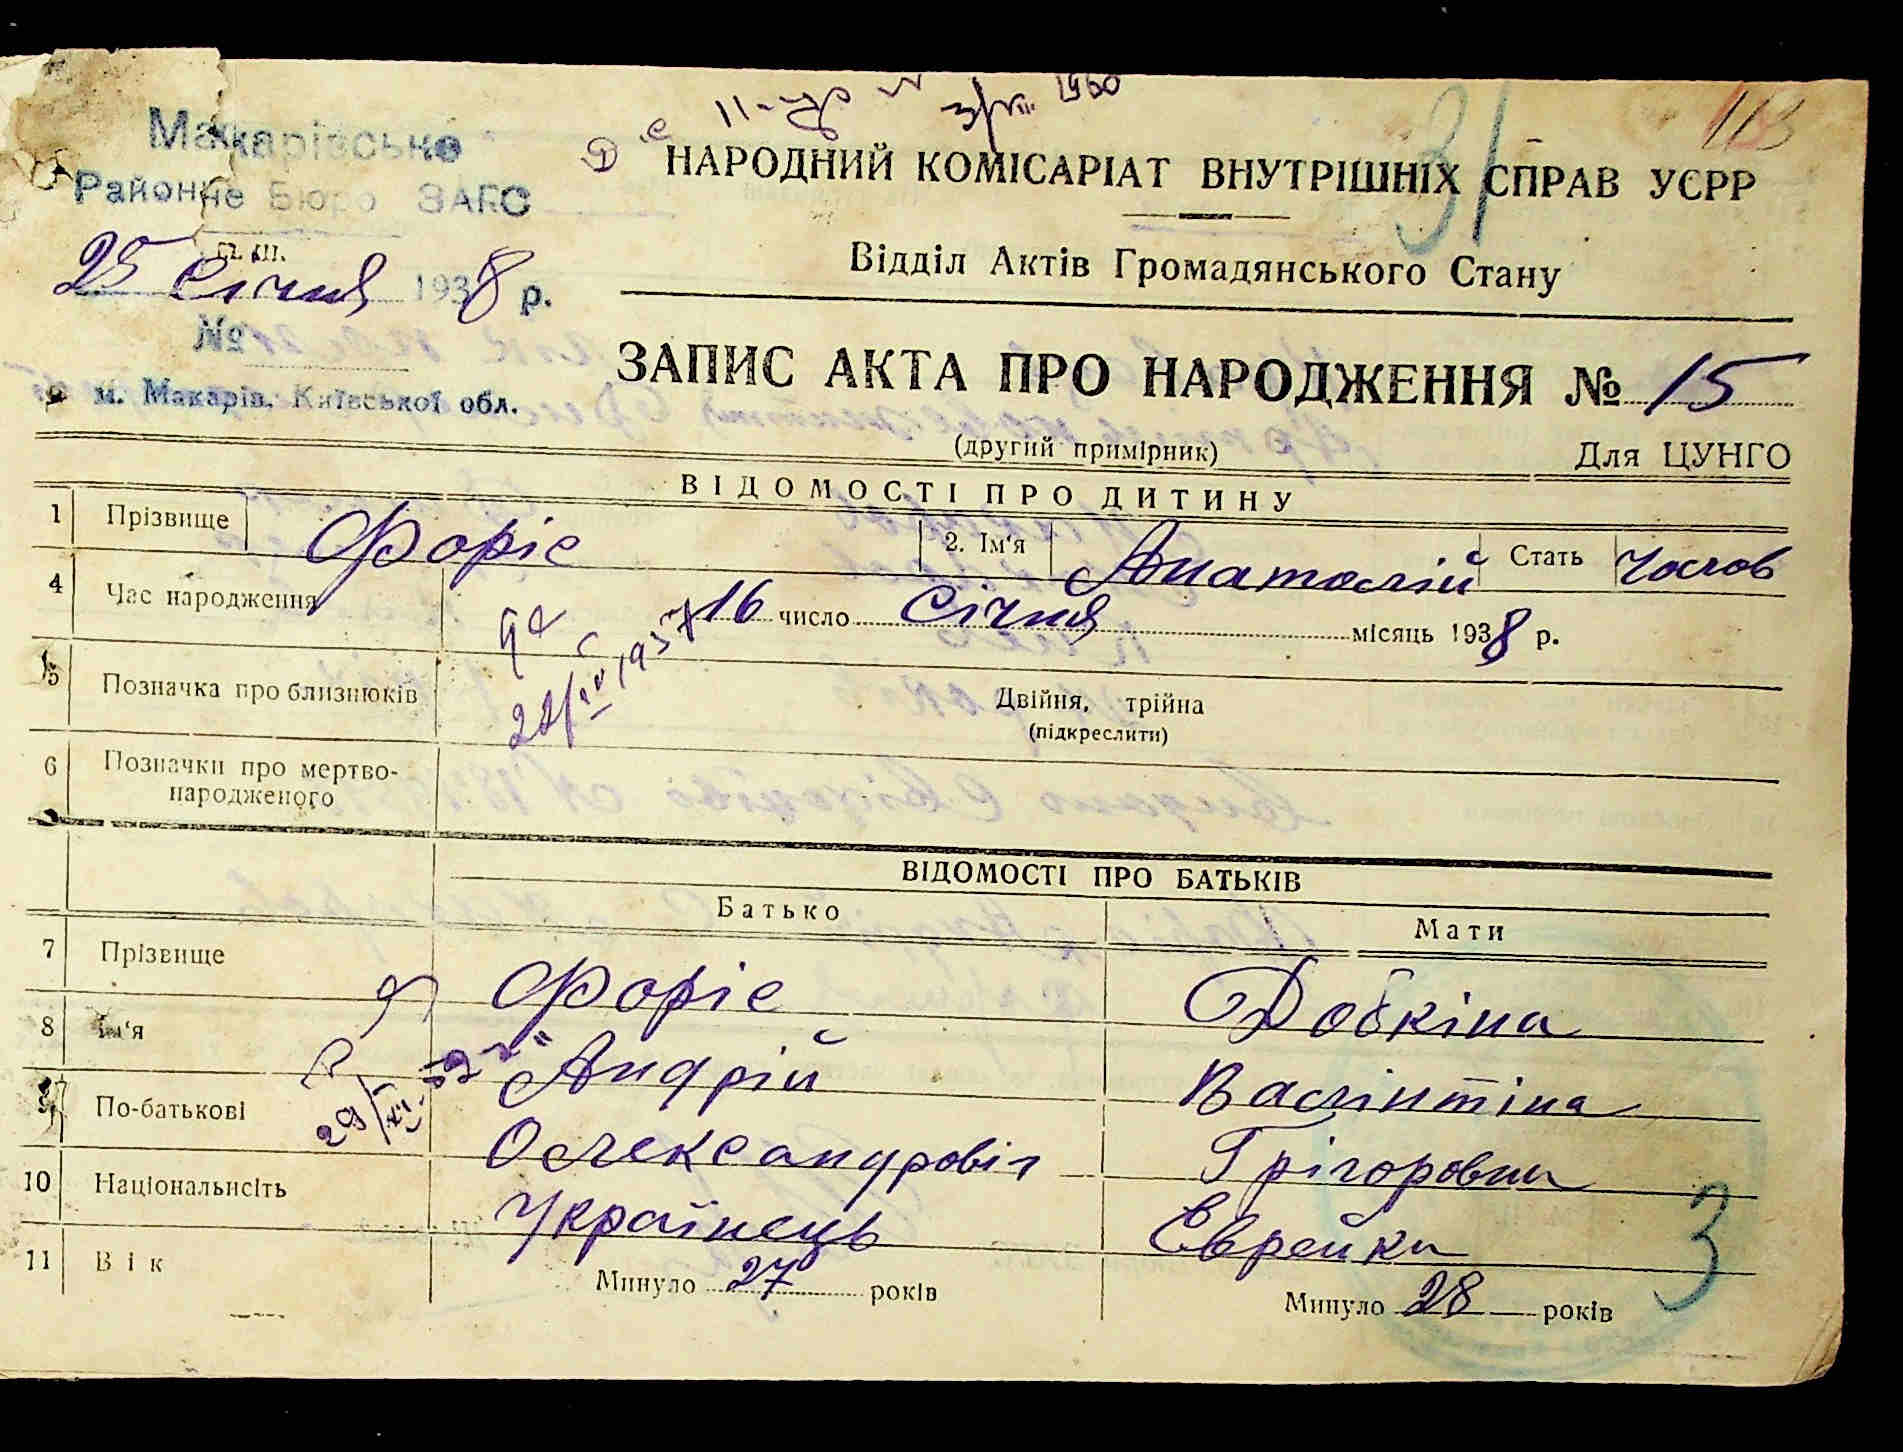 113
31
Макарівське
Районне Бюро ЗАГС
25 Січня 1938 р.
№
м. Макарів, Київської обл.
НАРОДНИЙ КОМІСАРІАТ ВНУТРІШНІХ СПРАВ УСРР
Відділ Актів Громадянського Стану
ЗАПИС АКТА ПРО НАРОДЖЕННЯ № 15
(другий примірник) Для ЦУНГО
ВІДОМОСТІ ПРО ДИТИНУ
1 Прізвище Форіс 2. Ім'я Анатолій Стать Чолов
4 Час народження 16 число Січня місяць 1938 р.
5 Позначка про близнюків Двійня, трійна
(підкреслити)
6 Позначки про мертво-
народженого
ВІДОМОСТІ ПРО БАТЬКІВ
Батько Мати
7 Прізвище Форіс Добкіна
8 Ім'я Андрій Валінтіна
9 По-батькові Олександровіч Грігоровна
10 Національність Українець Еврейка
11 Вік Минуло 27 років Минуло 28 років
3